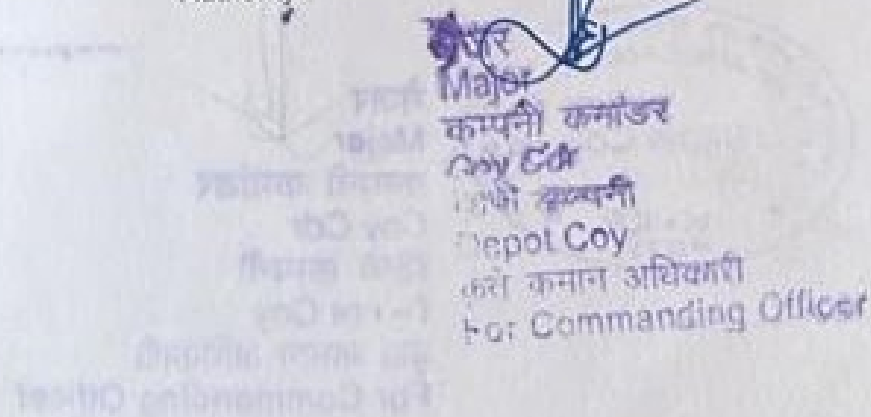 मेजर
Major
कम्पनी कमांडर
Coy Cdr
डिपो कम्पनी
Depot Coy
कृते कमान अधिकारी
For Commanding Officer